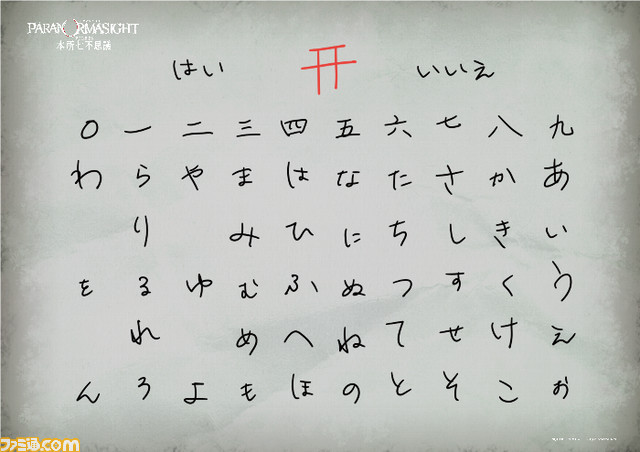 PARANORMASIGHT
本所七不思議
はい いいえ
〇 一 二 三 四 五 六 七 八 九
わ ら や ま は な た さ か あ
り み ひ に ち し き い
を る ゆ む ふ ぬ つ す く う
れ め へ ね て せ け え
ん ろ よ も ほ の と そ こ お
ファミ通.com